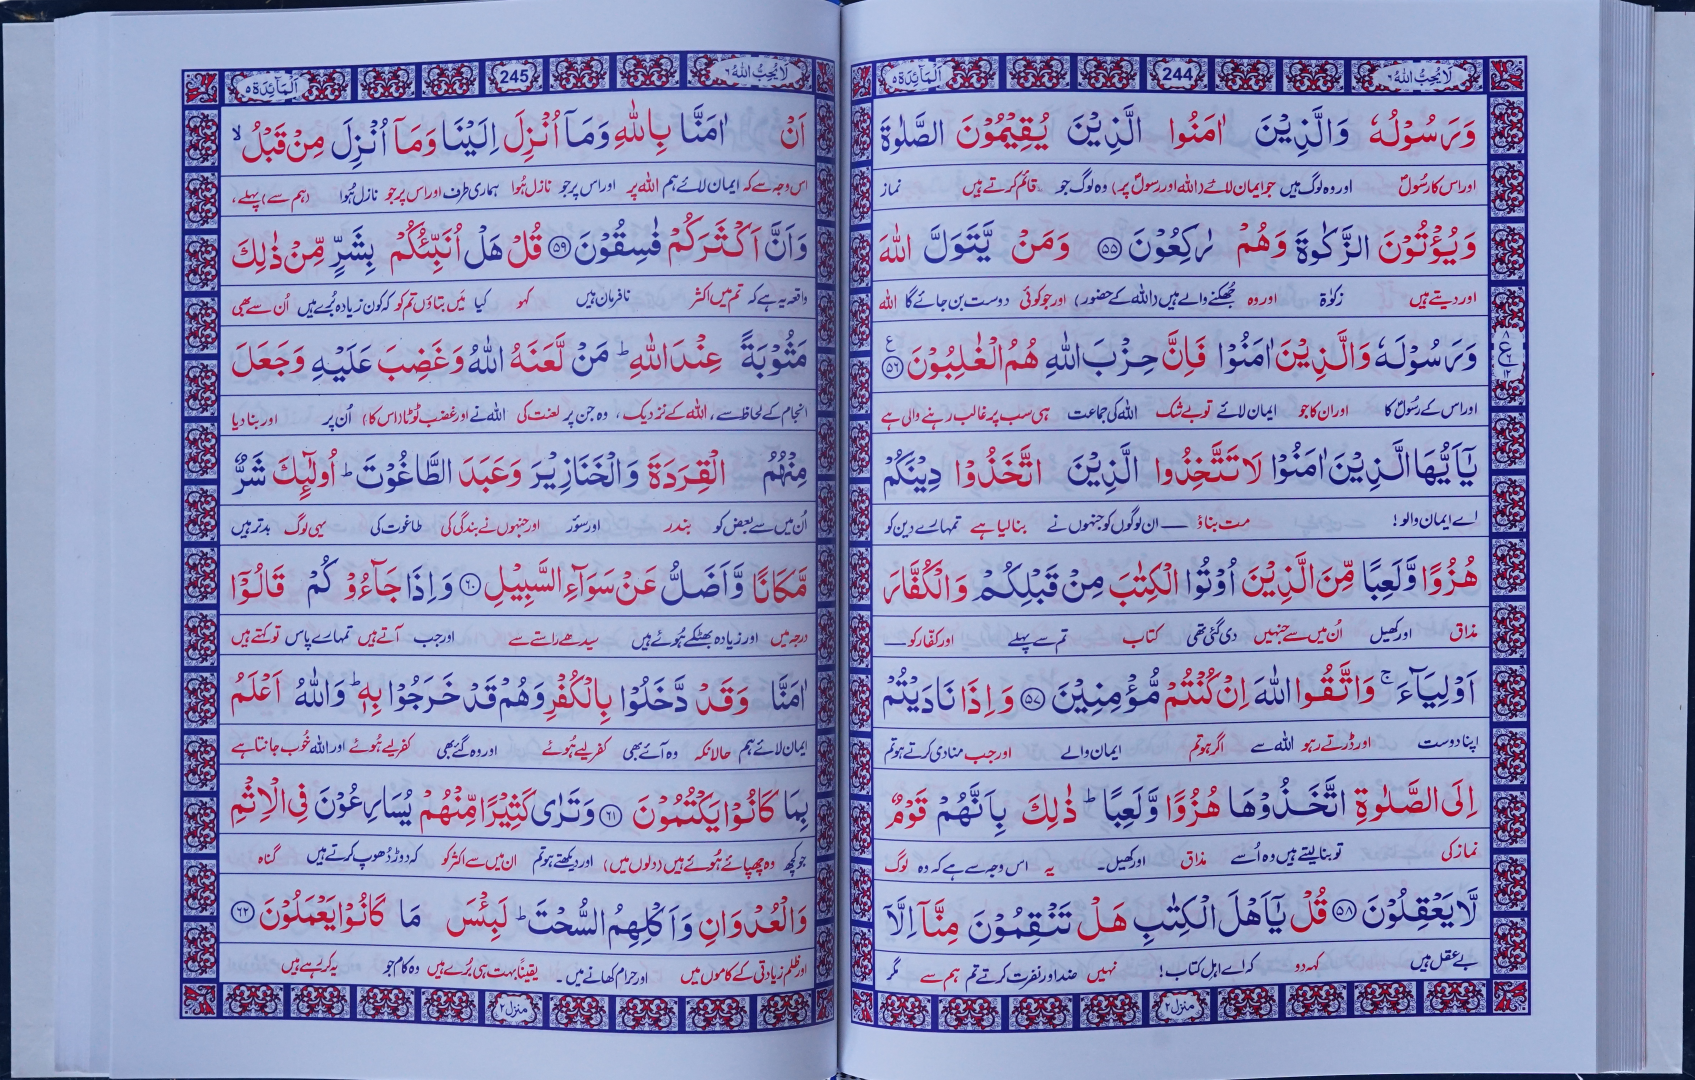 لَا يُحِبُّ اللهُ ٦
244
اَلْمَآئِدَة ٥
وَرَسُوْلُهٗ وَالَّذِيْنَ اٰمَنُوا الَّذِيْنَ يُقِيْمُوْنَ الصَّلٰوةَ
اور اس کا رسُولؐ اور وہ لوگ ہیں جو ایمان لائے (اللہ اور رسولؐ پر) وہ لوگ جو قائم کرتے ہیں نماز
وَيُؤْتُوْنَ الزَّكٰوةَ وَهُمْ رٰكِعُوْنَ ﴿۵۵﴾ وَمَنْ يَّتَوَلَّ اللّٰهَ
اور دیتے ہیں زکوٰۃ اور وہ جُھکنے والے ہیں (اللہ کے حضور) اور جو کوئی دوست بن جائے گا اللہ
وَرَسُوْلَهٗ وَالَّذِيْنَ اٰمَنُوْا فَاِنَّ حِزْبَ اللّٰهِ هُمُ الْغٰلِبُوْنَ ﴿۵۶﴾ ع
اور اس کے رسُولؐ کا اور ان کا جو ایمان لائے تو بے شک اللہ کی جماعت ہی سب پر غالب رہنے والی ہے
٨ ع ٦ ١٢
يٰۤاَيُّهَا الَّذِيْنَ اٰمَنُوْا لَا تَتَّخِذُوا الَّذِيْنَ اتَّخَذُوْا دِيْنَكُمْ
اے ایمان والو! مت بناؤ ان لوگوں کو جنہوں نے بنا لیا ہے تمہارے دین کو
هُزُوًا وَّلَعِبًا مِّنَ الَّذِيْنَ اُوْتُوا الْكِتٰبَ مِنْ قَبْلِكُمْ وَالْكُفَّارَ
مذاق اور کھیل اُن میں سے جنہیں دی گئی تھی کتاب تم سے پہلے اور کفّار کو
اَوْلِيَآءَ ۚ وَاتَّقُوا اللّٰهَ اِنْ كُنْتُمْ مُّؤْمِنِيْنَ ﴿۵۷﴾ وَاِذَا نَادَيْتُمْ
اپنا دوست اور ڈرتے رہو اللہ سے اگر ہو تم ایمان والے اور جب منادی کرتے ہو تم
اِلَى الصَّلٰوةِ اتَّخَذُوْهَا هُزُوًا وَّلَعِبًا ؕ ذٰلِكَ بِاَنَّهُمْ قَوْمٌ
نماز کی تو بنا لیتے ہیں وہ اُسے مذاق اور کھیل۔ یہ اس وجہ سے ہے کہ وہ لوگ
لَّا يَعْقِلُوْنَ ﴿۵۸﴾ قُلْ يٰۤاَهْلَ الْكِتٰبِ هَلْ تَنْقِمُوْنَ مِنَّاۤ اِلَّاۤ
بے عقل ہیں کہہ دو کہ اے اہلِ کتاب! نہیں ضد اور نفرت کرتے تم ہم سے مگر
منزل ٢
لَا يُحِبُّ اللهُ ٦
245
اَلْمَآئِدَة ٥
اَنْ اٰمَنَّا بِاللّٰهِ وَمَاۤ اُنْزِلَ اِلَيْنَا وَمَاۤ اُنْزِلَ مِنْ قَبْلُ ۙ
اس وجہ سے کہ ایمان لائے ہم اللہ پر اور اس پر جو نازل ہُوا ہماری طرف اور اس پر جو نازل ہُوا (ہم سے) پہلے،
وَاَنَّ اَكْثَرَكُمْ فٰسِقُوْنَ ﴿۵۹﴾ قُلْ هَلْ اُنَبِّئُكُمْ بِشَرٍّ مِّنْ ذٰلِكَ
واقعہ یہ ہے کہ تم میں اکثر نافرمان ہیں کہو کیا مَیں بتاؤں تم کو کہ کون زیادہ بُرے ہیں اُن سے بھی
مَثُوْبَةً عِنْدَ اللّٰهِ ؕ مَنْ لَّعَنَهُ اللّٰهُ وَغَضِبَ عَلَيْهِ وَجَعَلَ
انجام کے لحاظ سے، اللہ کے نزدیک، وہ جن پر لعنت کی اللہ نے اور غضب ٹُوٹا (اس کا) اُن پر اور بنا دیا
مِنْهُمُ الْقِرَدَةَ وَالْخَنَازِيْرَ وَعَبَدَ الطَّاغُوْتَ ؕ اُولٰٓئِكَ شَرٌّ
اُن میں سے بعض کو بندر اور سؤر اور جنہوں نے بندگی کی طاغوت کی یہی لوگ بدتر ہیں
مَّكَانًا وَّاَضَلُّ عَنْ سَوَآءِ السَّبِيْلِ ﴿۶۰﴾ وَاِذَا جَآءُوْكُمْ قَالُوْۤا
درجہ میں اور زیادہ بھٹکے ہُوئے ہیں سیدھے راستے سے اور جب آتے ہیں تمہارے پاس تو کہتے ہیں
اٰمَنَّا وَقَدْ دَّخَلُوْا بِالْكُفْرِ وَهُمْ قَدْ خَرَجُوْا بِهٖ ؕ وَاللّٰهُ اَعْلَمُ
ایمان لائے ہم حالانکہ وہ آئے بھی کفر لیے ہُوئے اور وہ گئے بھی کفر لیے ہُوئے اور اللہ خُوب جانتا ہے
بِمَا كَانُوْا يَكْتُمُوْنَ ﴿۶۱﴾ وَتَرٰى كَثِيْرًا مِّنْهُمْ يُسَارِعُوْنَ فِى الْاِثْمِ
جو کچھ وہ چھپائے ہُوئے ہیں (دلوں میں) اور دیکھتے ہو تم ان میں سے اکثر کو کہ دوڑ دُھوپ کرتے ہیں گناہ
وَالْعُدْوَانِ وَاَكْلِهِمُ السُّحْتَ ؕ لَبِئْسَ مَا كَانُوْا يَعْمَلُوْنَ ﴿۶۲﴾
اور ظلم زیادتی کے کاموں میں اور حرام کھانے میں۔ یقیناً بہت ہی بُرے ہیں وہ کام جو یہ کر رہے ہیں
منزل ٢